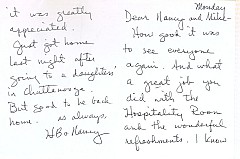 Monday
Dear Nancy and Mike-
How good it was
to see everyone
again. And what
a great job you
did with the
Hospitality Room
and the wonderful
refreshments. I know
it was greatly
appreciated.
Just got home
last night after
going to a daughters'
in Chattanooga.
But good to be back
home. as always.